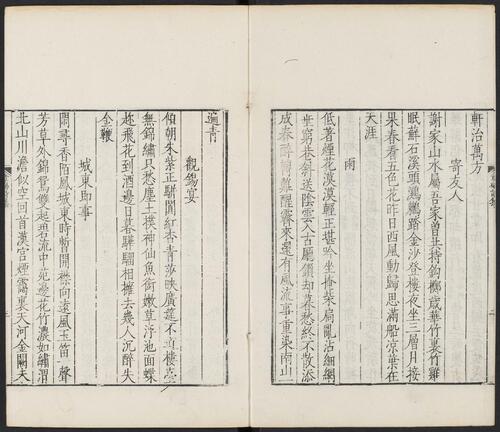 軒治萬方
寄友人
謝家山水屬吾家曾共持鈎擲歲華竹裏竹雞
眠蘚石溪頭鸂鶒踏金沙登樓夜坐三層月接
果春看五色花昨日西風動歸思滿船涼葉在
天涯
雨
低著煙花漠漠輕正堪吟坐掩柴扃亂沾細網
垂窮巷斜送陰雲入古廳鎖却暮愁終不散添
成春醉轉難醒霽來還有風流事重染南山一
遍青
觀錫宴
傾朝朱紫正駢闐紅杏青莎映廣筵不道樓臺
無錦繡只愁塵土撲神仙魚銜嫩草浮池面蝶
趂飛花到酒邊日暮驊騮相擁去幾人沉醉失
金鞭
城東即事
閑尋香陌鳳城東時暫開襟向遠風玉笛一聲
芳草外錦鴛雙起碧流中苑邊花竹濃如繡渭
北山川澹似空回首漢宮煙靄裏天河金闕未